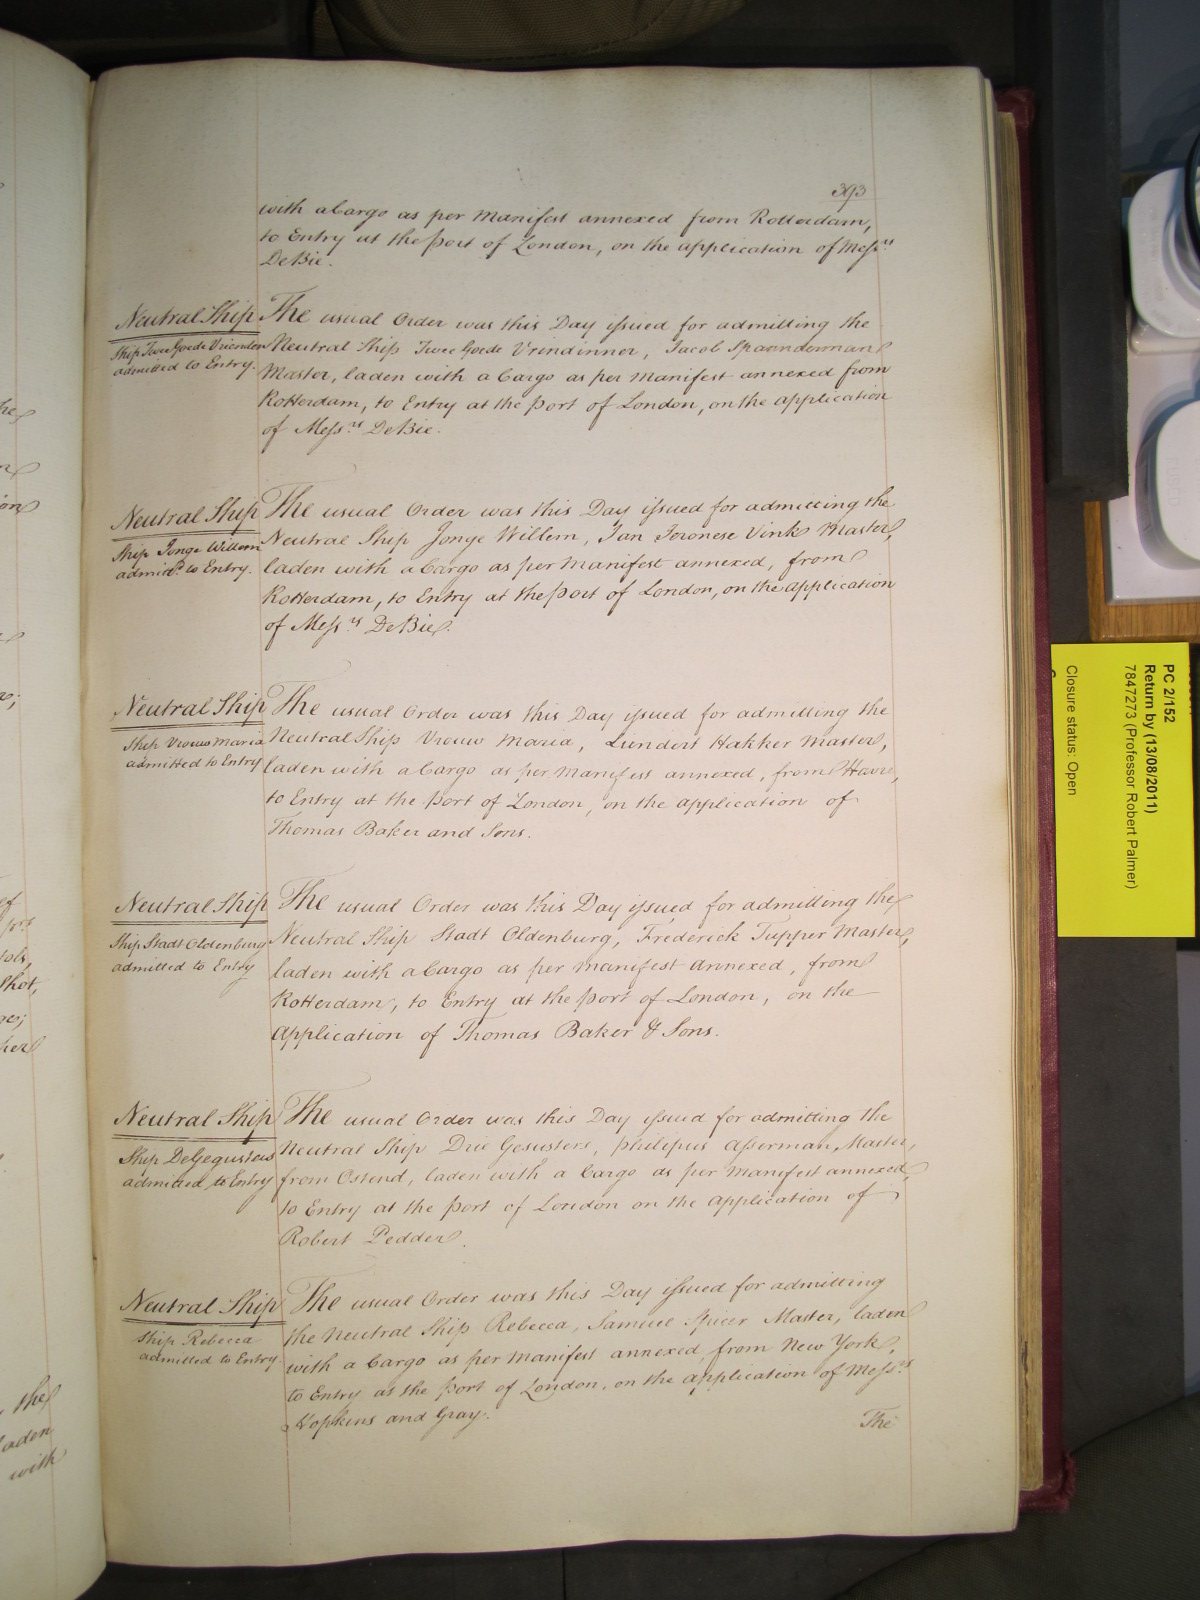 393
with a Cargo as per Manifest annexed from Rotterdam,
to Entry at the Port of London, on the application of Mess.rs
DeBie.
Neutral Ship
Ship Twee Goede Vrienden
admitted to Entry.
The usual Order was this Day issued for admitting the
Neutral Ship Twee Goede Vrindinner, Jacob Spannderman
Master, laden with a Cargo as per Manifest annexed from
Rotterdam, to Entry at the Port of London, on the application
of Mess.rs DeBie.
Neutral Ship
Ship Jonge Willem
admitd. to Entry.
The usual Order was this Day issued for admitting the
Neutral Ship Jonge Willem, Jan Jeronese Vink Master,
laden with a Cargo as per Manifest annexed, from
Rotterdam, to Entry at the Port of London, on the application
of Mess.rs DeBie.
Neutral Ship
Ship Vrouw Maria
admitted to Entry
The usual Order was this Day issued for admitting the
Neutral Ship Vrouw Maria, Lundert Hakker Master,
laden with a Cargo as per Manifest annexed, from Havre,
to Entry at the Port of London, on the application of
Thomas Baker and Sons.
Neutral Ship
Ship Stadt Oldenburg
admitted to Entry
The usual Order was this Day issued for admitting the
Neutral Ship Stadt Oldenburg, Frederick Tupper Master,
laden with a Cargo as per Manifest annexed, from
Rotterdam, to Entry at the Port of London, on the
Application of Thomas Baker & Sons.
Neutral Ship
Ship DeGegusters
admitted to Entry
The usual Order was this Day issued for admitting the
Neutral Ship Drie Gesusters, Philipus Asserman, Master,
from Ostend, laden with a Cargo as per Manifest annexed
to Entry at the Port of London on the application of
Robert Pedder.
Neutral Ship
Ship Rebecca
admitted to Entry.
The usual Order was this Day issued for admitting
the Neutral Ship Rebecca, Samuel Spicer Master, laden
with a Cargo as per Manifest annexed from New York,
to Entry at the Port of London, on the application of Mess.rs
Hopkins and Gray.
The
the
laden
with
PC 2/152
Return by (13/08/2011)
7847273 (Professor Robert Palmer)
Closure status: Open